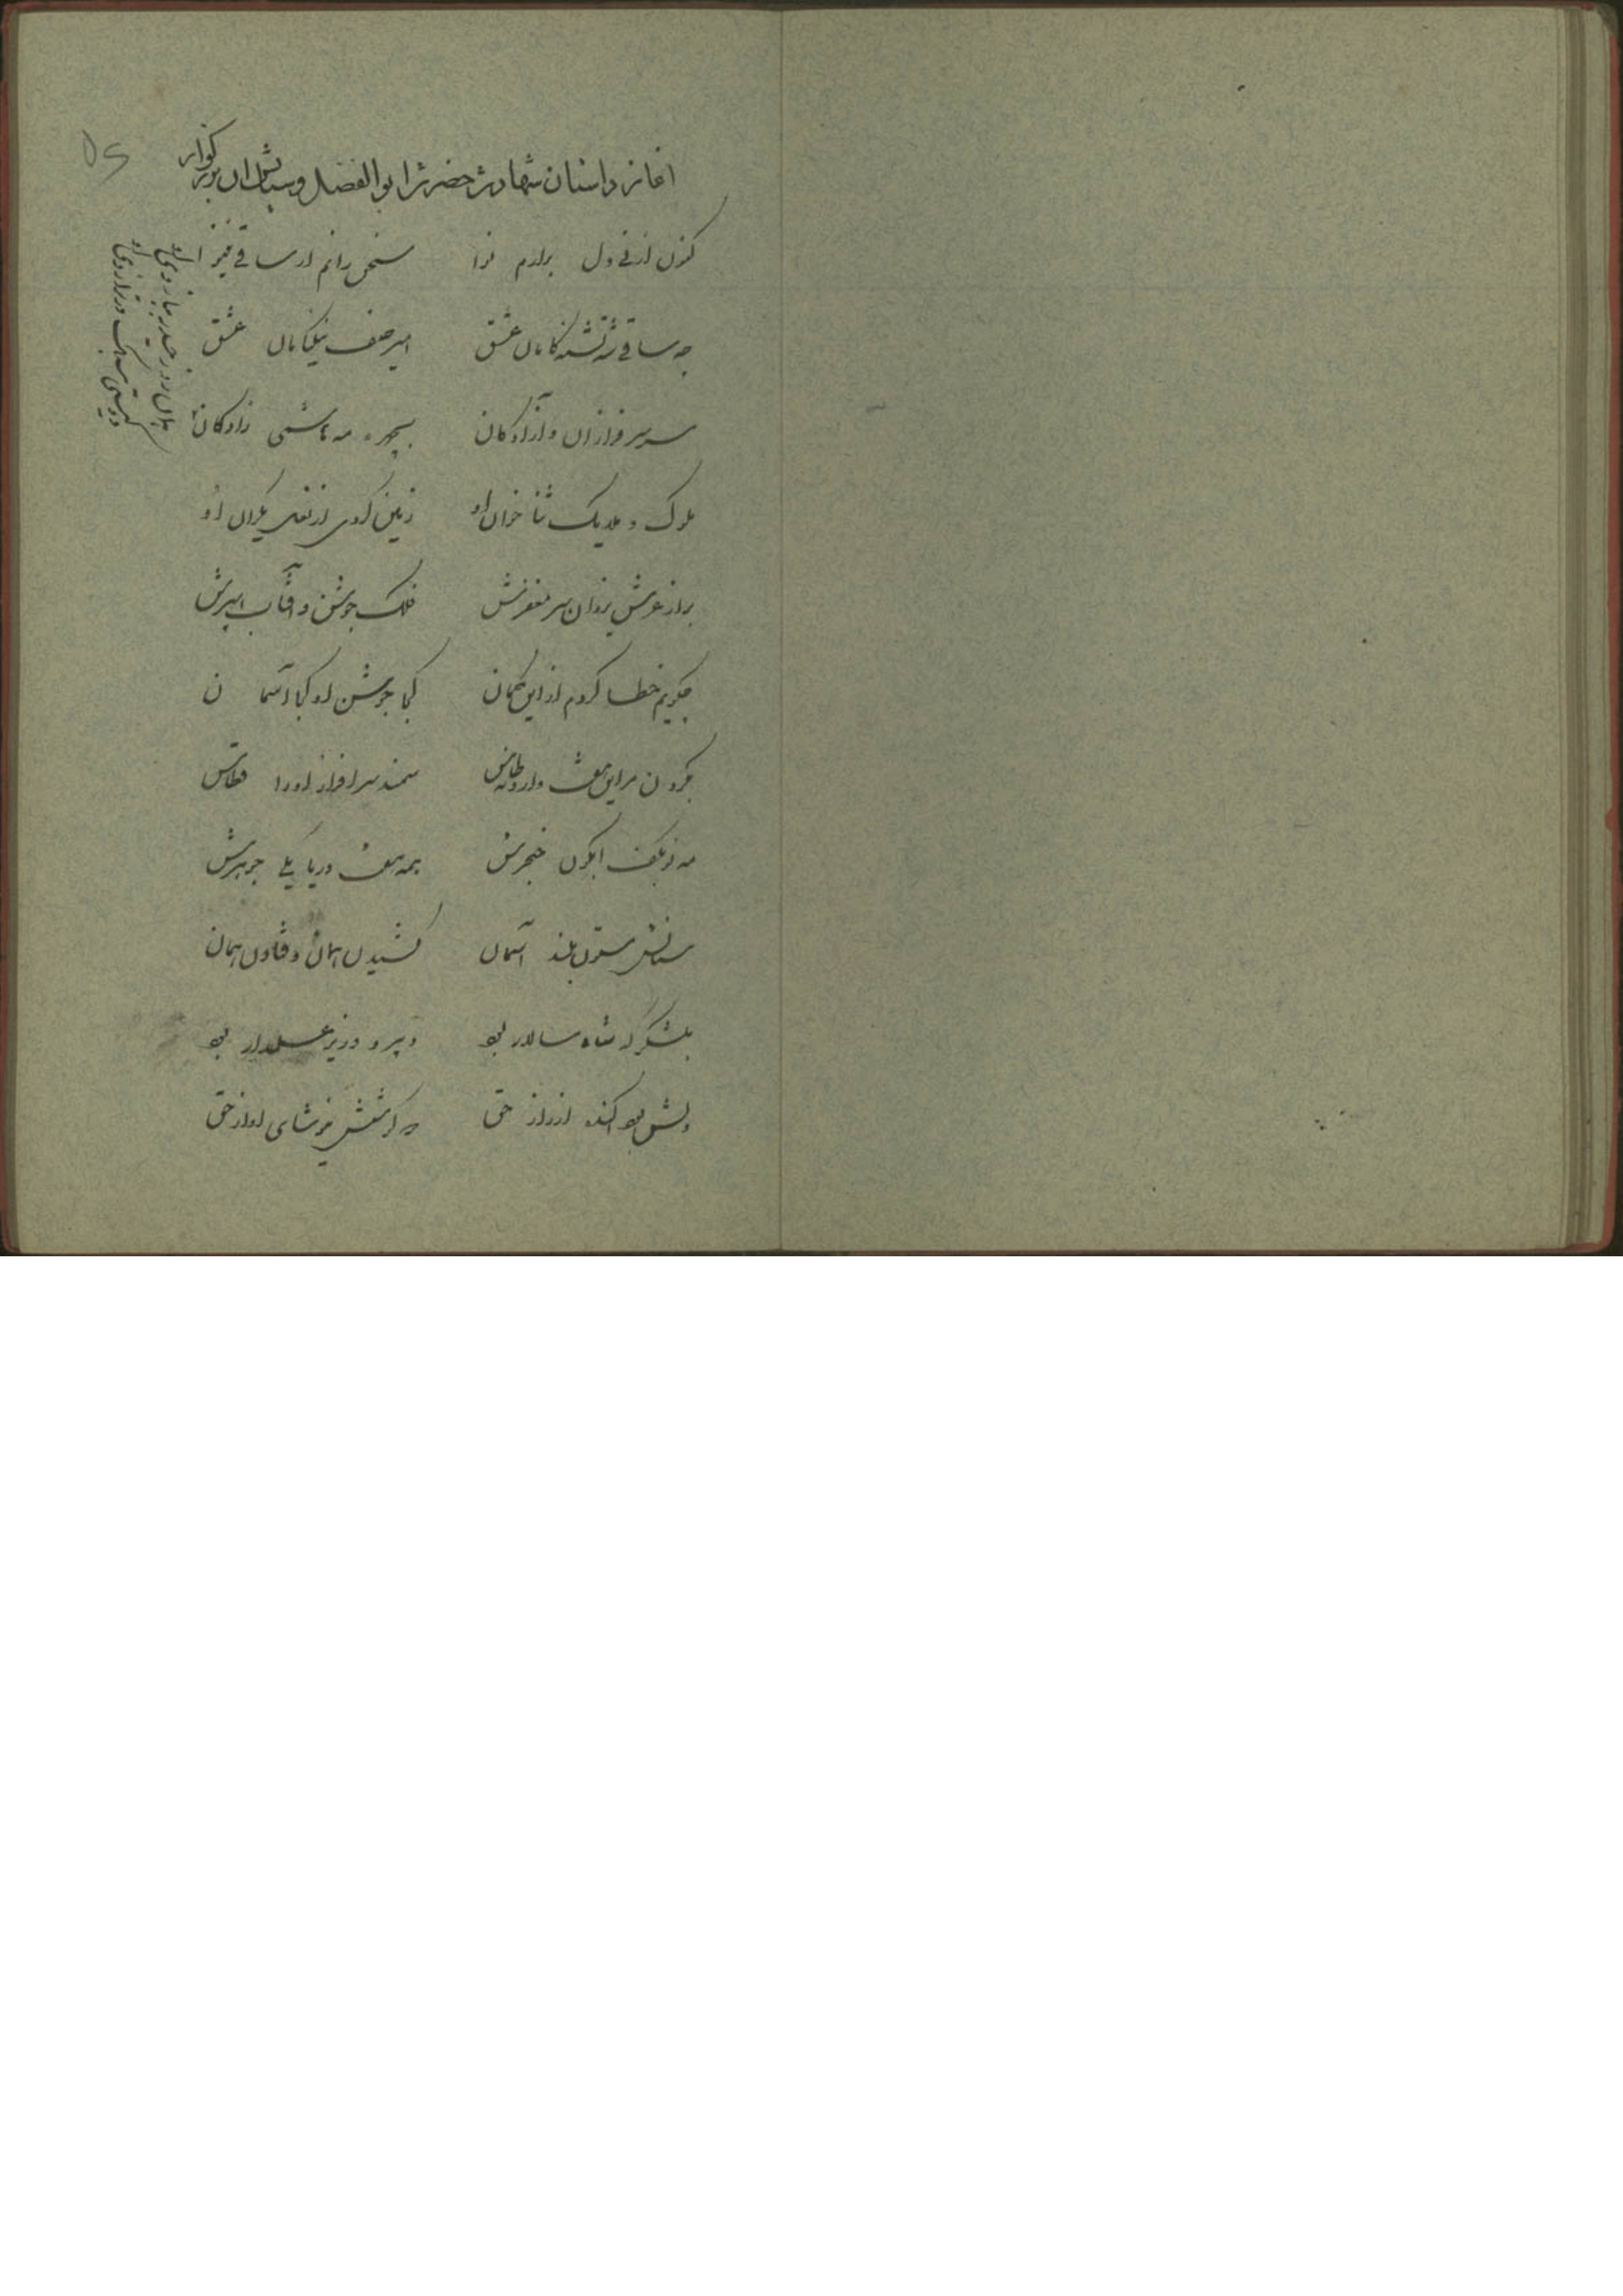 اغاز داستان شهادت حضرت ابوالفضل و ستایش ان بزرکوار
کنون از نی دل برارم نوا سخن رانم از ساقی نینوا
چه ساقی شه تشنه کامان عشق امیر صف نیکنامان عشق
سر سرفرازان و آزادکان بچهره مه هاشمی زادکان
ملوک و ملایک ثنا خوان او زمین کوی از نعل یکران او
براز عرش یزدان سر مغفرش فلک جوشن و آفتاب اسپرش
چکویم خطا کردم از این کمان کجا جوشن او کجا آسمان
سمند سرافراز او را قطاس
مه نو بکف ابکون خنجرش همه هفت دریا یکی جوهرش
سنانش ستون بلند آسمان کشیدن همان و فتادن همان
بلشکر که شاه سالار بود دبیر و وزیر و علمدار بود
دلش بود اکنده از راز حق
همان زور حیدر ببازوی او
دو کیتی سبک در ترازوی او